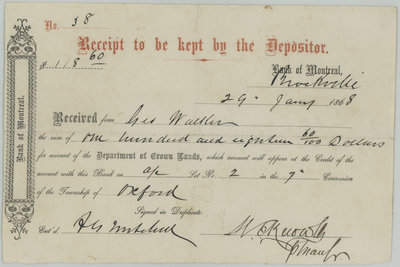 No. 38
Receipt to be kept by the Depositor.
$ 118 60
Bank of Montreal,
Brockville
29 Jany 1868
Received from Geo Walker
the sum of One hundred and eighteen 60/100 Dollars
for account of the Department of Crown Lands, which amount will appear at the Credit of the
account with this Bank on a/c Lot No. 2 in the 7th Concession
of the Township of Oxford
Signed in Duplicate.
Ent'd.
Manager
Bank of Montreal.